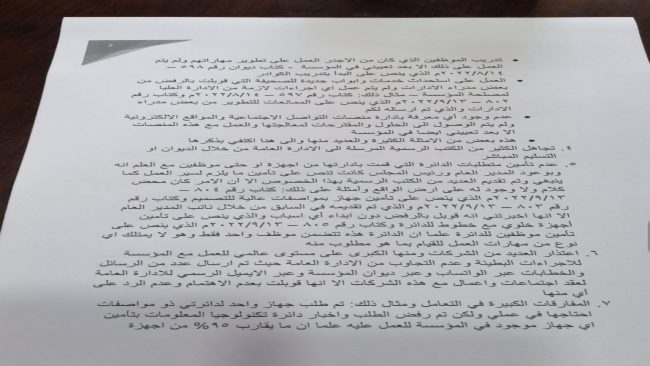 2
تدريب الموظفين الذي كان من الاجدر العمل على تطوير مهاراتهم ولم يتم
العمل على ذلك الا بعد تعييني في المؤسسة - كتاب ديوان رقم ٥٩٨ –
٢٠٢٢/٨/١٤م الذي ينص على البدأ بتدريب الكوادر
العمل على استحداث خدمات وابواب جديدة للصحيفة التي قوبلت بالرفض من
بعض مدراء الادارات ولم يتم عمل اي اجراءات لازمة من الادارة العليا
لمصلحة المؤسسة – مثال ذلك: كتاب رقم ٥٩٧ – ٢٠٢٢/٨/١٤م وكتاب رقم
٨٠٢ – ٢٠٢٢/٩/١٣م الذي ينص على الممانعات للتطوير من بعض مدراء
الادارات والذي تم ارساله لكم
عدم وجود أي معرفة بادارة منصات التواصل الاجتماعية والمواقع الالكترونية
ولم يتم الوصول الى الحلول والمقترحات لمعالجتها والعمل مع هذه المنصات
الا بعد تعييني ايضا في المؤسسة
هذه بعض من الامثلة الكثيرة والعديد منها والى هنا اكتفي بذكرها
٤. تجاهل الكثير من الكتب الرسمية المرسلة الى الادارة العامة من خلال الديوان او
التسليم المباشر
٥. عدم تأمين متطلبات الدائرة التي قمت بادارتها من اجهزة او حتى موظفين مع العلم انه
وبوعود المدير العام ورئيس المجلس كانت تنص على تأمين ما يلزم لسير العمل كما
ينبغي وتم تقديم العديد من الكتب الرسمية بهذا الخصوص الا أن الامر كان محض
كلام ولا وجود له على ارض الواقع وأمثلة على ذلك: كتاب رقم ٨٠٤ –
٢٠٢٢/٩/١٣م الذي ينص على تأمين جهاز بمواصفات عالية للتصميم وكتاب رقم
رقم ٨٠٣ – ٢٠٢٢/٩/١٣م والذي تم تقديمه في السابق من خلال نائب المدير العام
الا انها اخبرتني انه قوبل بالرفض دون ابداء أي اسباب والذي ينص على تأمين
أجهزة خلوي مع خطوط للدائرة وكتاب رقم ٨٠٥ – ٢٠٢٢/٩/١٣م والذي ينص على
تأمين موظفين للدائرة علما ان الدائرة هذه تتضمن موظف واحد فقط وهو لا يمتلك اي
نوع من مهارات العمل للقيام بما هو مطلوب منه
٦. اعتذار العديد من الشركات ومنها الكبرى على مستوى عالمي للعمل مع المؤسسة
للاجراءات البطيئة وعدم التجاوب من الادارة العامة حيث تم ارسال عدد من الرسائل
والخطابات عبر الواتساب وعبر ديوان المؤسسة وعبر الايميل الرسمي للادارة العامة
لعقد اجتماعات واعمال مع هذه الشركات الا انها قوبلت بعدم الاهتمام وعدم الرد على
أي منها
٧. المفارقات الكبيرة في التعامل ومثال ذلك: تم طلب جهاز واحد لدائرتي ذو مواصفات
احتاجها في عملي ولكن تم رفض الطلب واخبار دائرة تكنولوجيا المعلومات بتأمين
اي جهاز موجود في المؤسسة للعمل عليه علما ان ما يقارب ٩٥% من اجهزة